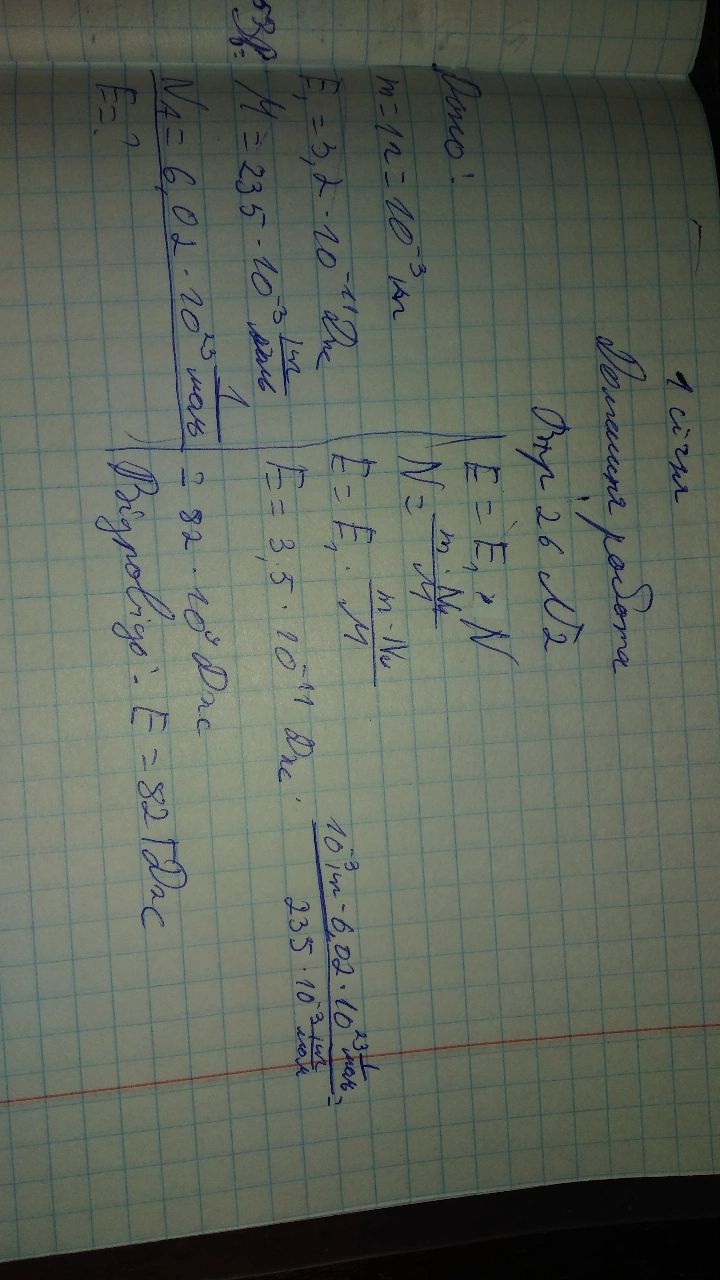 1 січня
Домашня робота
Впр 26 №2
Дано:
m = 1г = 10⁻³ кг
E₁ = 3,2 · 10⁻¹¹ Дж
M = 235 · 10⁻³ кг/моль
N_A = 6,02 · 10²³ 1/моль
E = ?
E = E₁ · N
N = m · N_A / M
E = E₁ · m · N_A / M
E = 3,5 · 10⁻¹¹ Дж · 10⁻³ кг · 6,02 · 10²³ 1/моль / 235 · 10⁻³ кг/моль =
= 82 · 10⁹ Дж
Відповідь: E = 82 ГДж